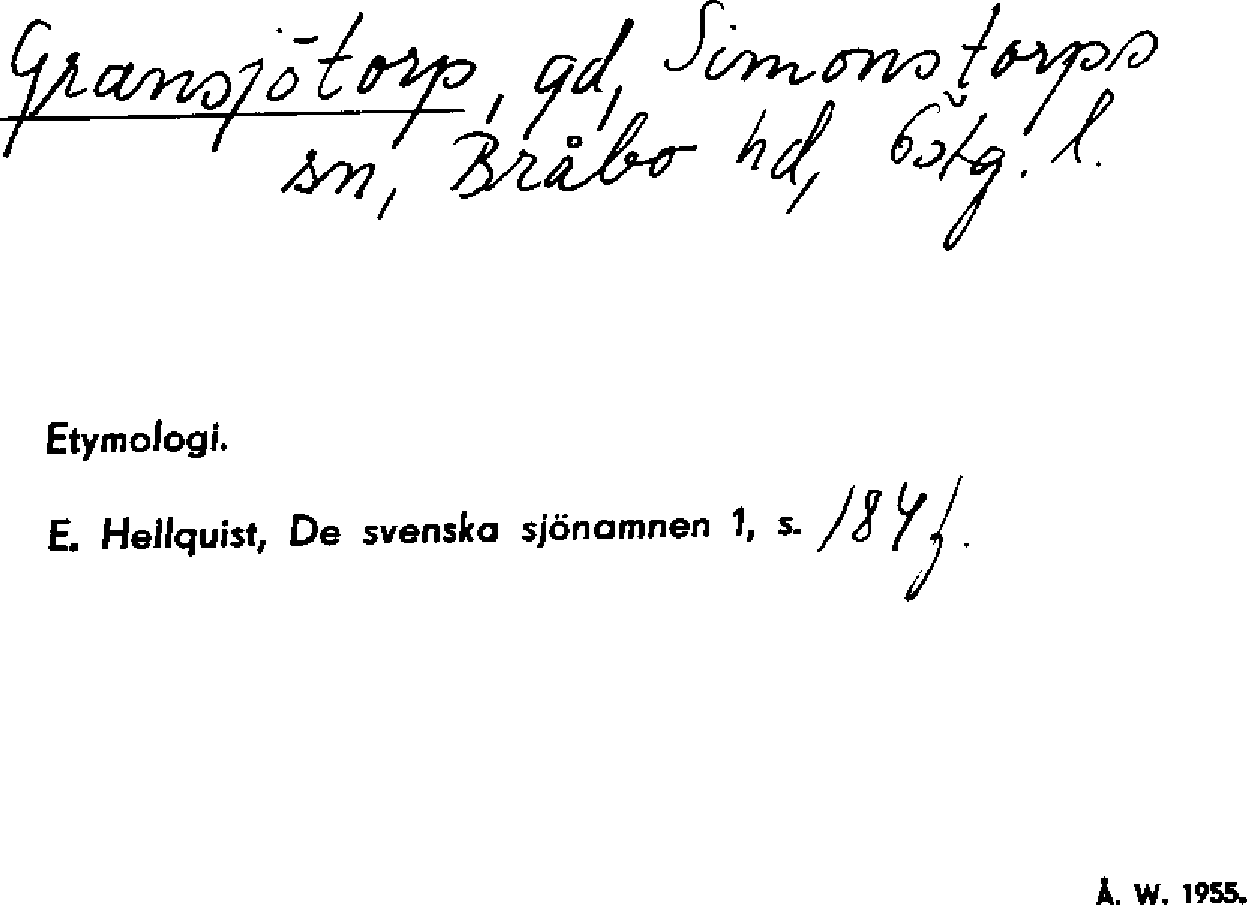 Gransjötorp, gd, Simonstorps
sn, Bråbo hd, Östg. l.
Etymologi.
E. Hellquist, De svenska sjönamnen 1, s. 184 f.
Å. W. 1955.